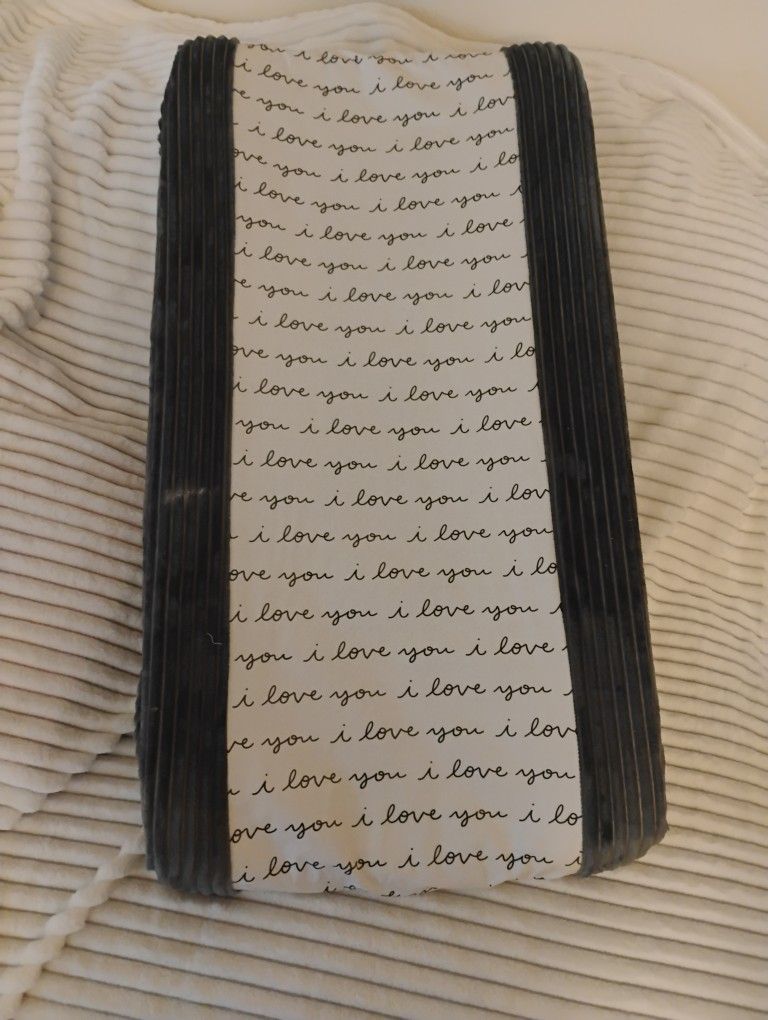 you i love you i love
i love you i love you
you i love you i lov
i love you i love you
ove you i love you i lo
i love you i love you
you i love you i love
i love you i love you
e you i love you i lov
i love you i love you
ove you i love you i lo
i love you i love you
you i love you i love
i love you i love you
ve you i love you i lov
i love you i love you
ove you i love you i lo
i love you i love you
you i love you i love
i love you i love you
ve you i love you i lov
i love you i love you
ove you i love you i lo
i love you i love you i